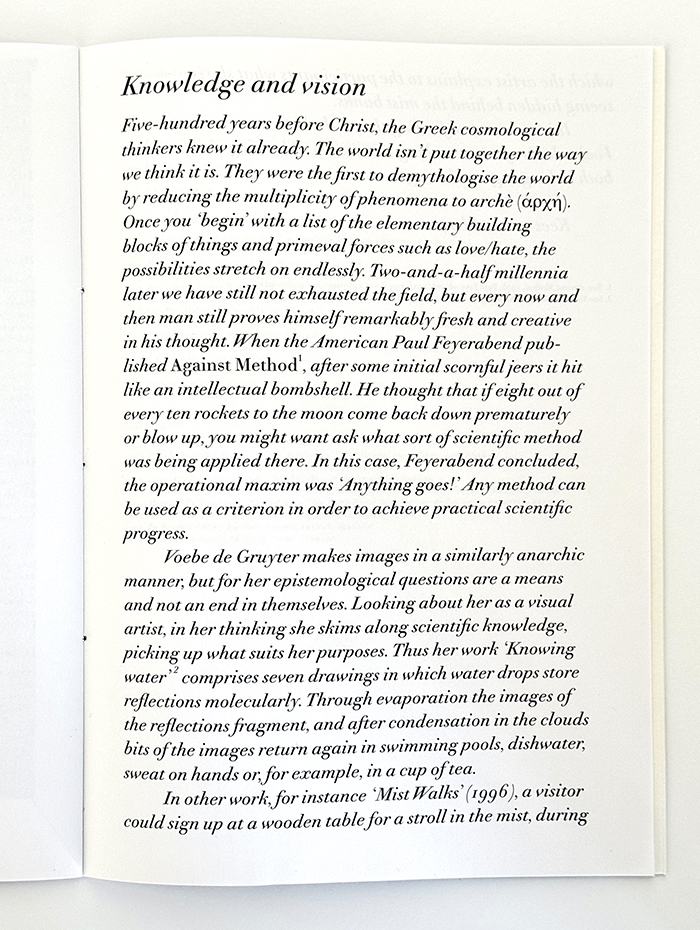 Knowledge and vision
Five-hundred years before Christ, the Greek cosmological
thinkers knew it already. The world isn't put together the way
we think it is. They were the first to demythologise the world
by reducing the multiplicity of phenomena to archè (άρχή).
Once you ‘begin’ with a list of the elementary building
blocks of things and primeval forces such as love/hate, the
possibilities stretch on endlessly. Two-and-a-half millennia
later we have still not exhausted the field, but every now and
then man still proves himself remarkably fresh and creative
in his thought. When the American Paul Feyerabend pub-
lished Against Method¹, after some initial scornful jeers it hit
like an intellectual bombshell. He thought that if eight out of
every ten rockets to the moon come back down prematurely
or blow up, you might want ask what sort of scientific method
was being applied there. In this case, Feyerabend concluded,
the operational maxim was ‘Anything goes!’ Any method can
be used as a criterion in order to achieve practical scientific
progress.
Voebe de Gruyter makes images in a similarly anarchic
manner, but for her epistemological questions are a means
and not an end in themselves. Looking about her as a visual
artist, in her thinking she skims along scientific knowledge,
picking up what suits her purposes. Thus her work ‘Knowing
water’² comprises seven drawings in which water drops store
reflections molecularly. Through evaporation the images of
the reflections fragment, and after condensation in the clouds
bits of the images return again in swimming pools, dishwater,
sweat on hands or, for example, in a cup of tea.
In other work, for instance ‘Mist Walks’ (1996), a visitor
could sign up at a wooden table for a stroll in the mist, during